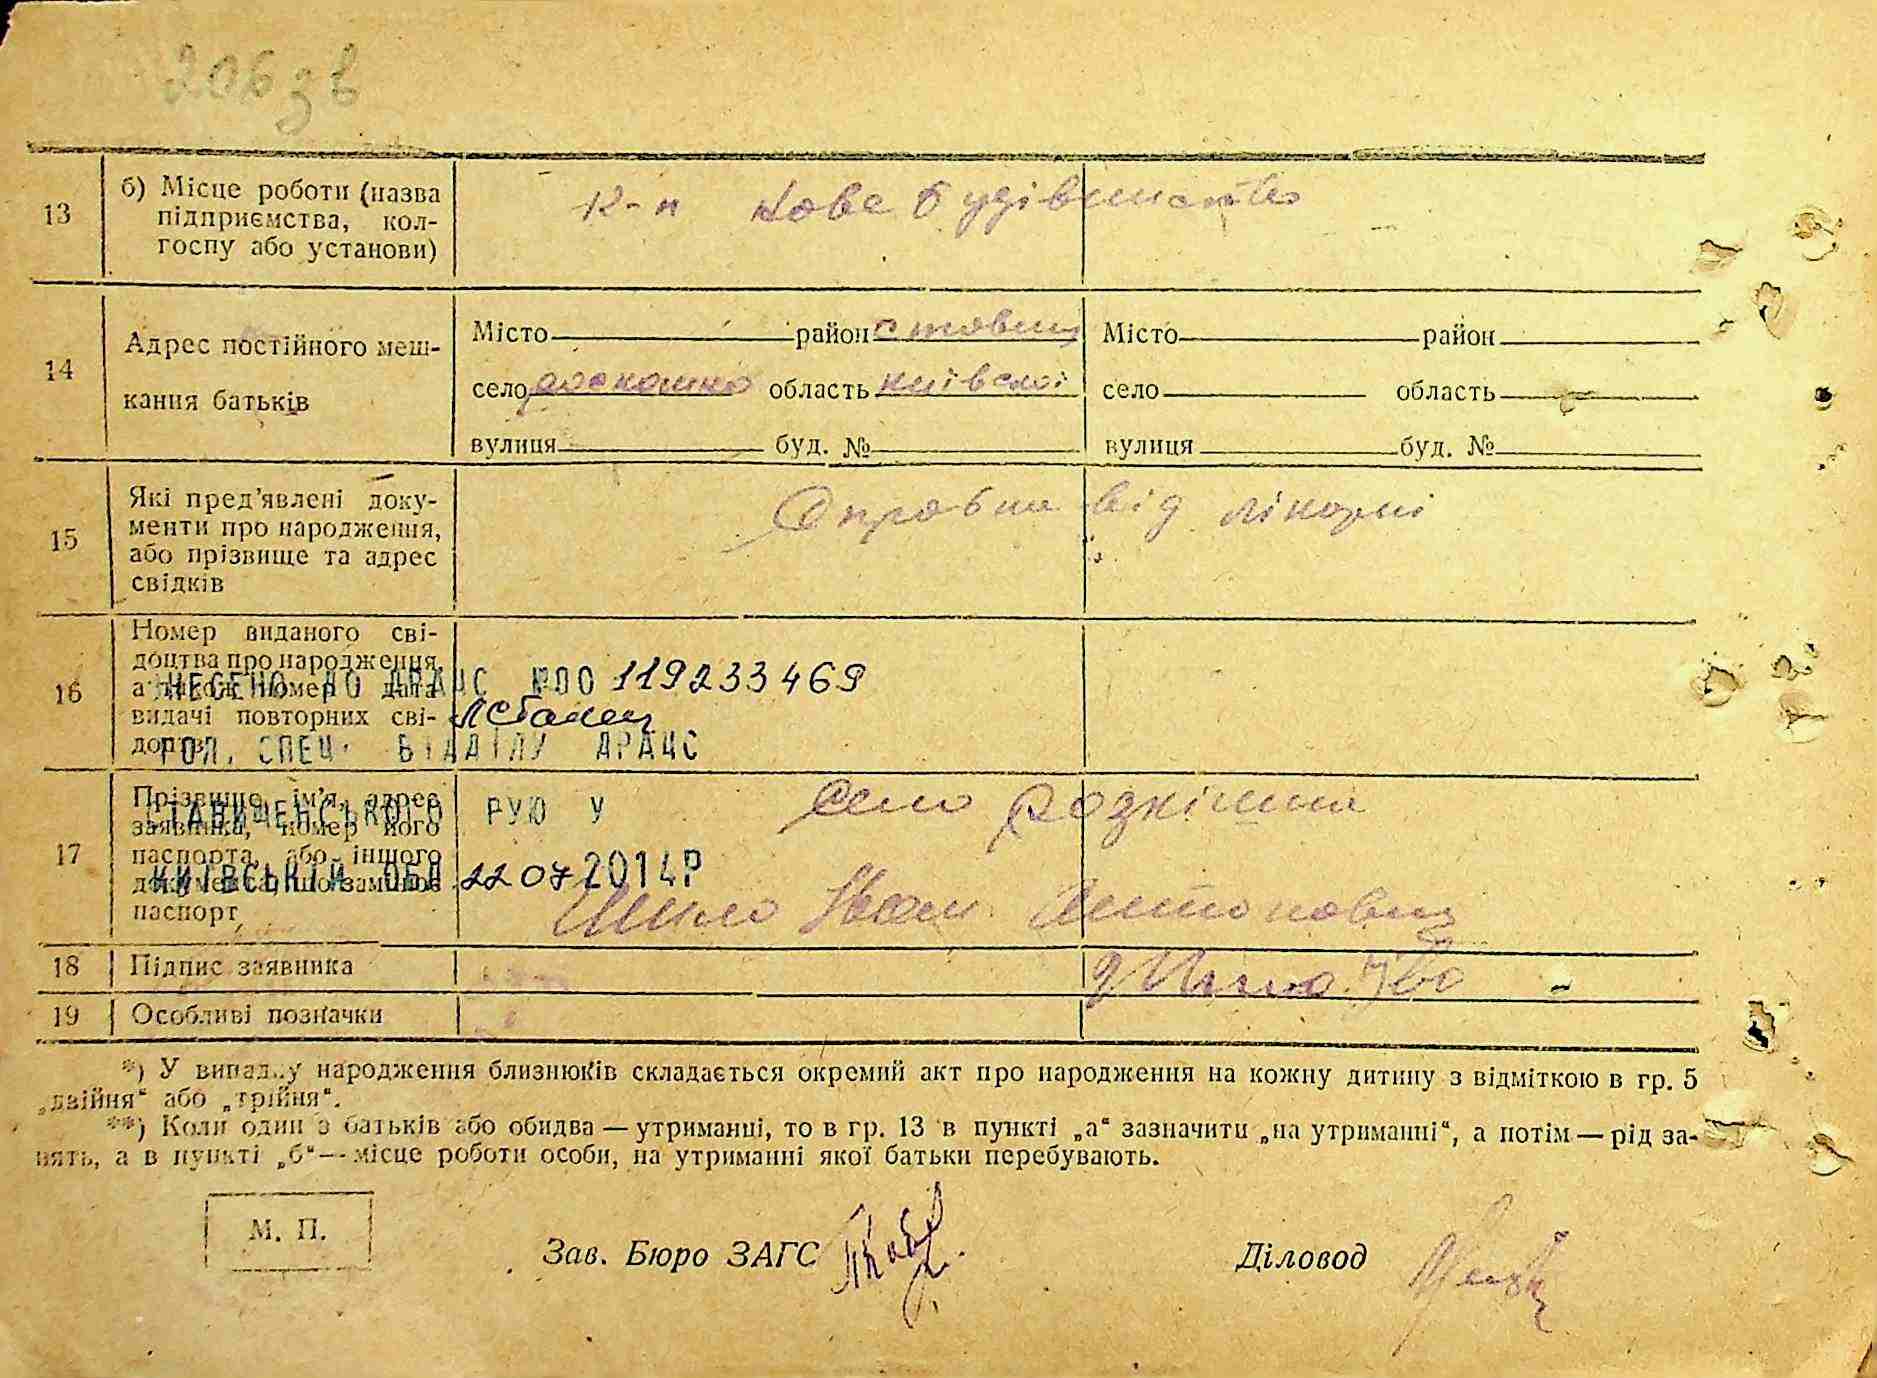 206 зв
13
б) Місце роботи (назва
підприємства, кол-
госпу або установи)
к-п Нове будівництво
14
Адрес постійного меш-
кання батьків
Місто район ставищ Місто район
село область київської село область
вулиця буд. № вулиця буд. №
15
Які пред'явлені доку-
менти про народження,
або прізвище та адрес
свідків
Справка від лікарні
16
Номер виданого сві-
доцтва про народження,
а також номер і дата
видачі повторних сві-
доцтв
ВНЕСЕНО ДО ДРАЦС №00119233469
ГОЛ. СПЕЦ. ВІДДІЛУ ДРАЦС
СТАВИЩЕНСЬКОГО РУЮ У
КИЇВСЬКІЙ ОБЛ 22 07 2014Р
17
Прізвище, ім'я, адрес
заявника, номер його
паспорта, або іншого
документа, що замінює
паспорт
село Розкішна
Шило Іван Антонович
18
Підпис заявника
Шило Іва
19
Особливі позначки
*) У випадку народження близнюків складається окремий акт про народження на кожну дитину з відміткою в гр. 5
„двійня“ або „трійня“.
**) Коли один з батьків або обидва — утриманці, то в гр. 13 в пункті „а“ зазначити „на утриманні“, а потім — рід за-
нять, а в пункті „б“ — місце роботи особи, на утриманні якої батьки перебувають.
М. П.
Зав. Бюро ЗАГС
Діловод